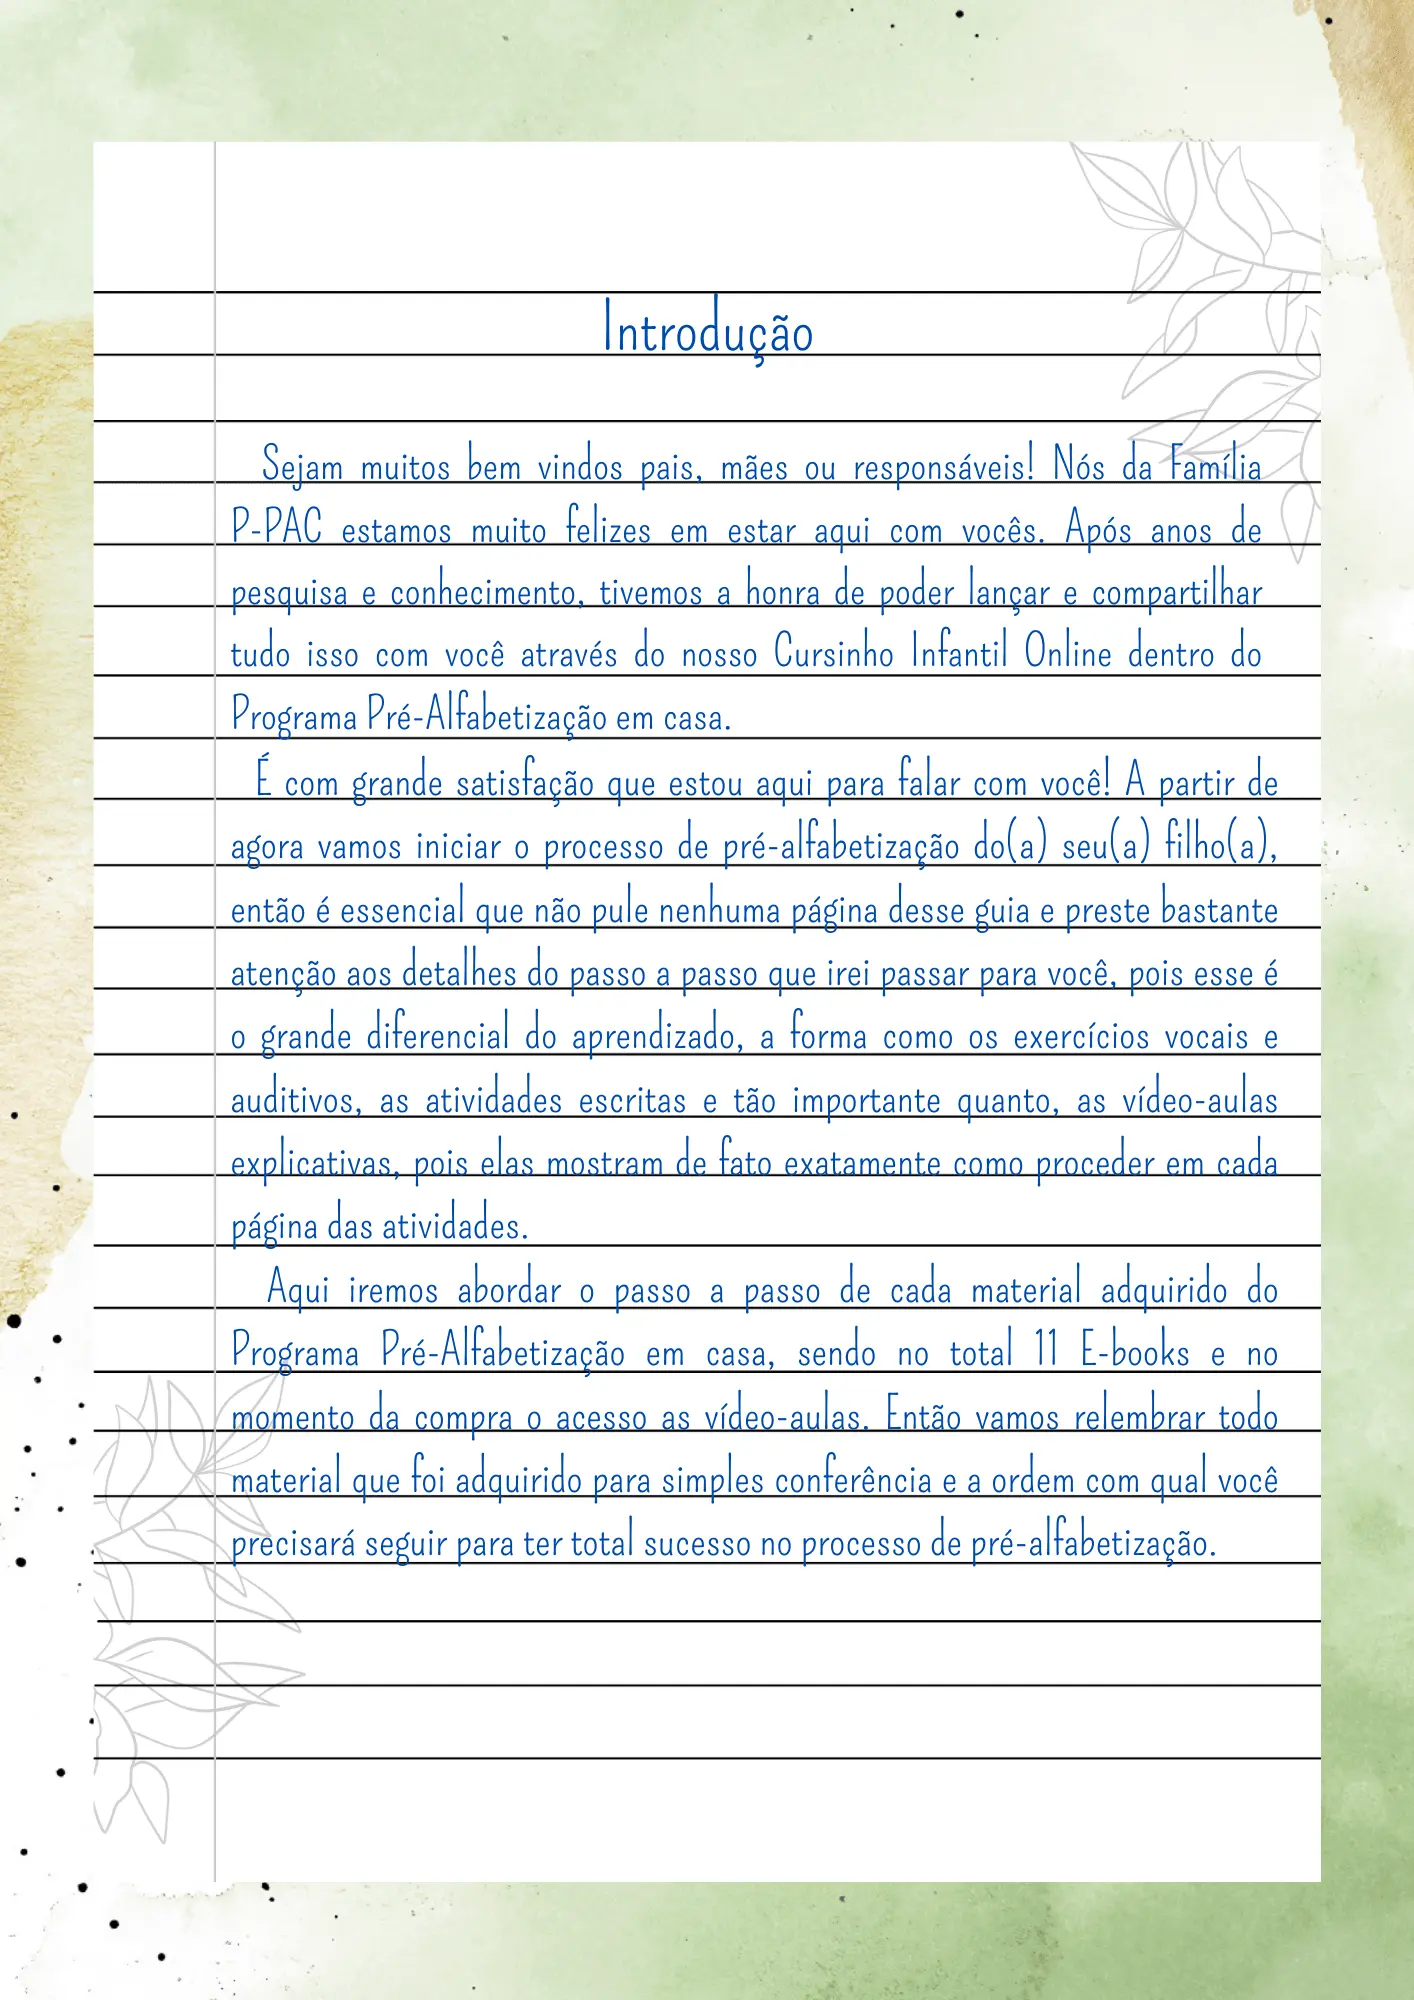 Introdução
Sejam muitos bem vindos pais, mães ou responsáveis! Nós da Família
P-PAC estamos muito felizes em estar aqui com vocês. Após anos de
pesquisa e conhecimento, tivemos a honra de poder lançar e compartilhar
tudo isso com você através do nosso Cursinho Infantil Online dentro do
Programa Pré-Alfabetização em casa.
É com grande satisfação que estou aqui para falar com você! A partir de
agora vamos iniciar o processo de pré-alfabetização do(a) seu(a) filho(a),
então é essencial que não pule nenhuma página desse guia e preste bastante
atenção aos detalhes do passo a passo que irei passar para você, pois esse é
o grande diferencial do aprendizado, a forma como os exercícios vocais e
auditivos, as atividades escritas e tão importante quanto, as vídeo-aulas
explicativas, pois elas mostram de fato exatamente como proceder em cada
página das atividades.
Aqui iremos abordar o passo a passo de cada material adquirido do
Programa Pré-Alfabetização em casa, sendo no total 11 E-books e no
momento da compra o acesso as vídeo-aulas. Então vamos relembrar todo
material que foi adquirido para simples conferência e a ordem com qual você
precisará seguir para ter total sucesso no processo de pré-alfabetização.